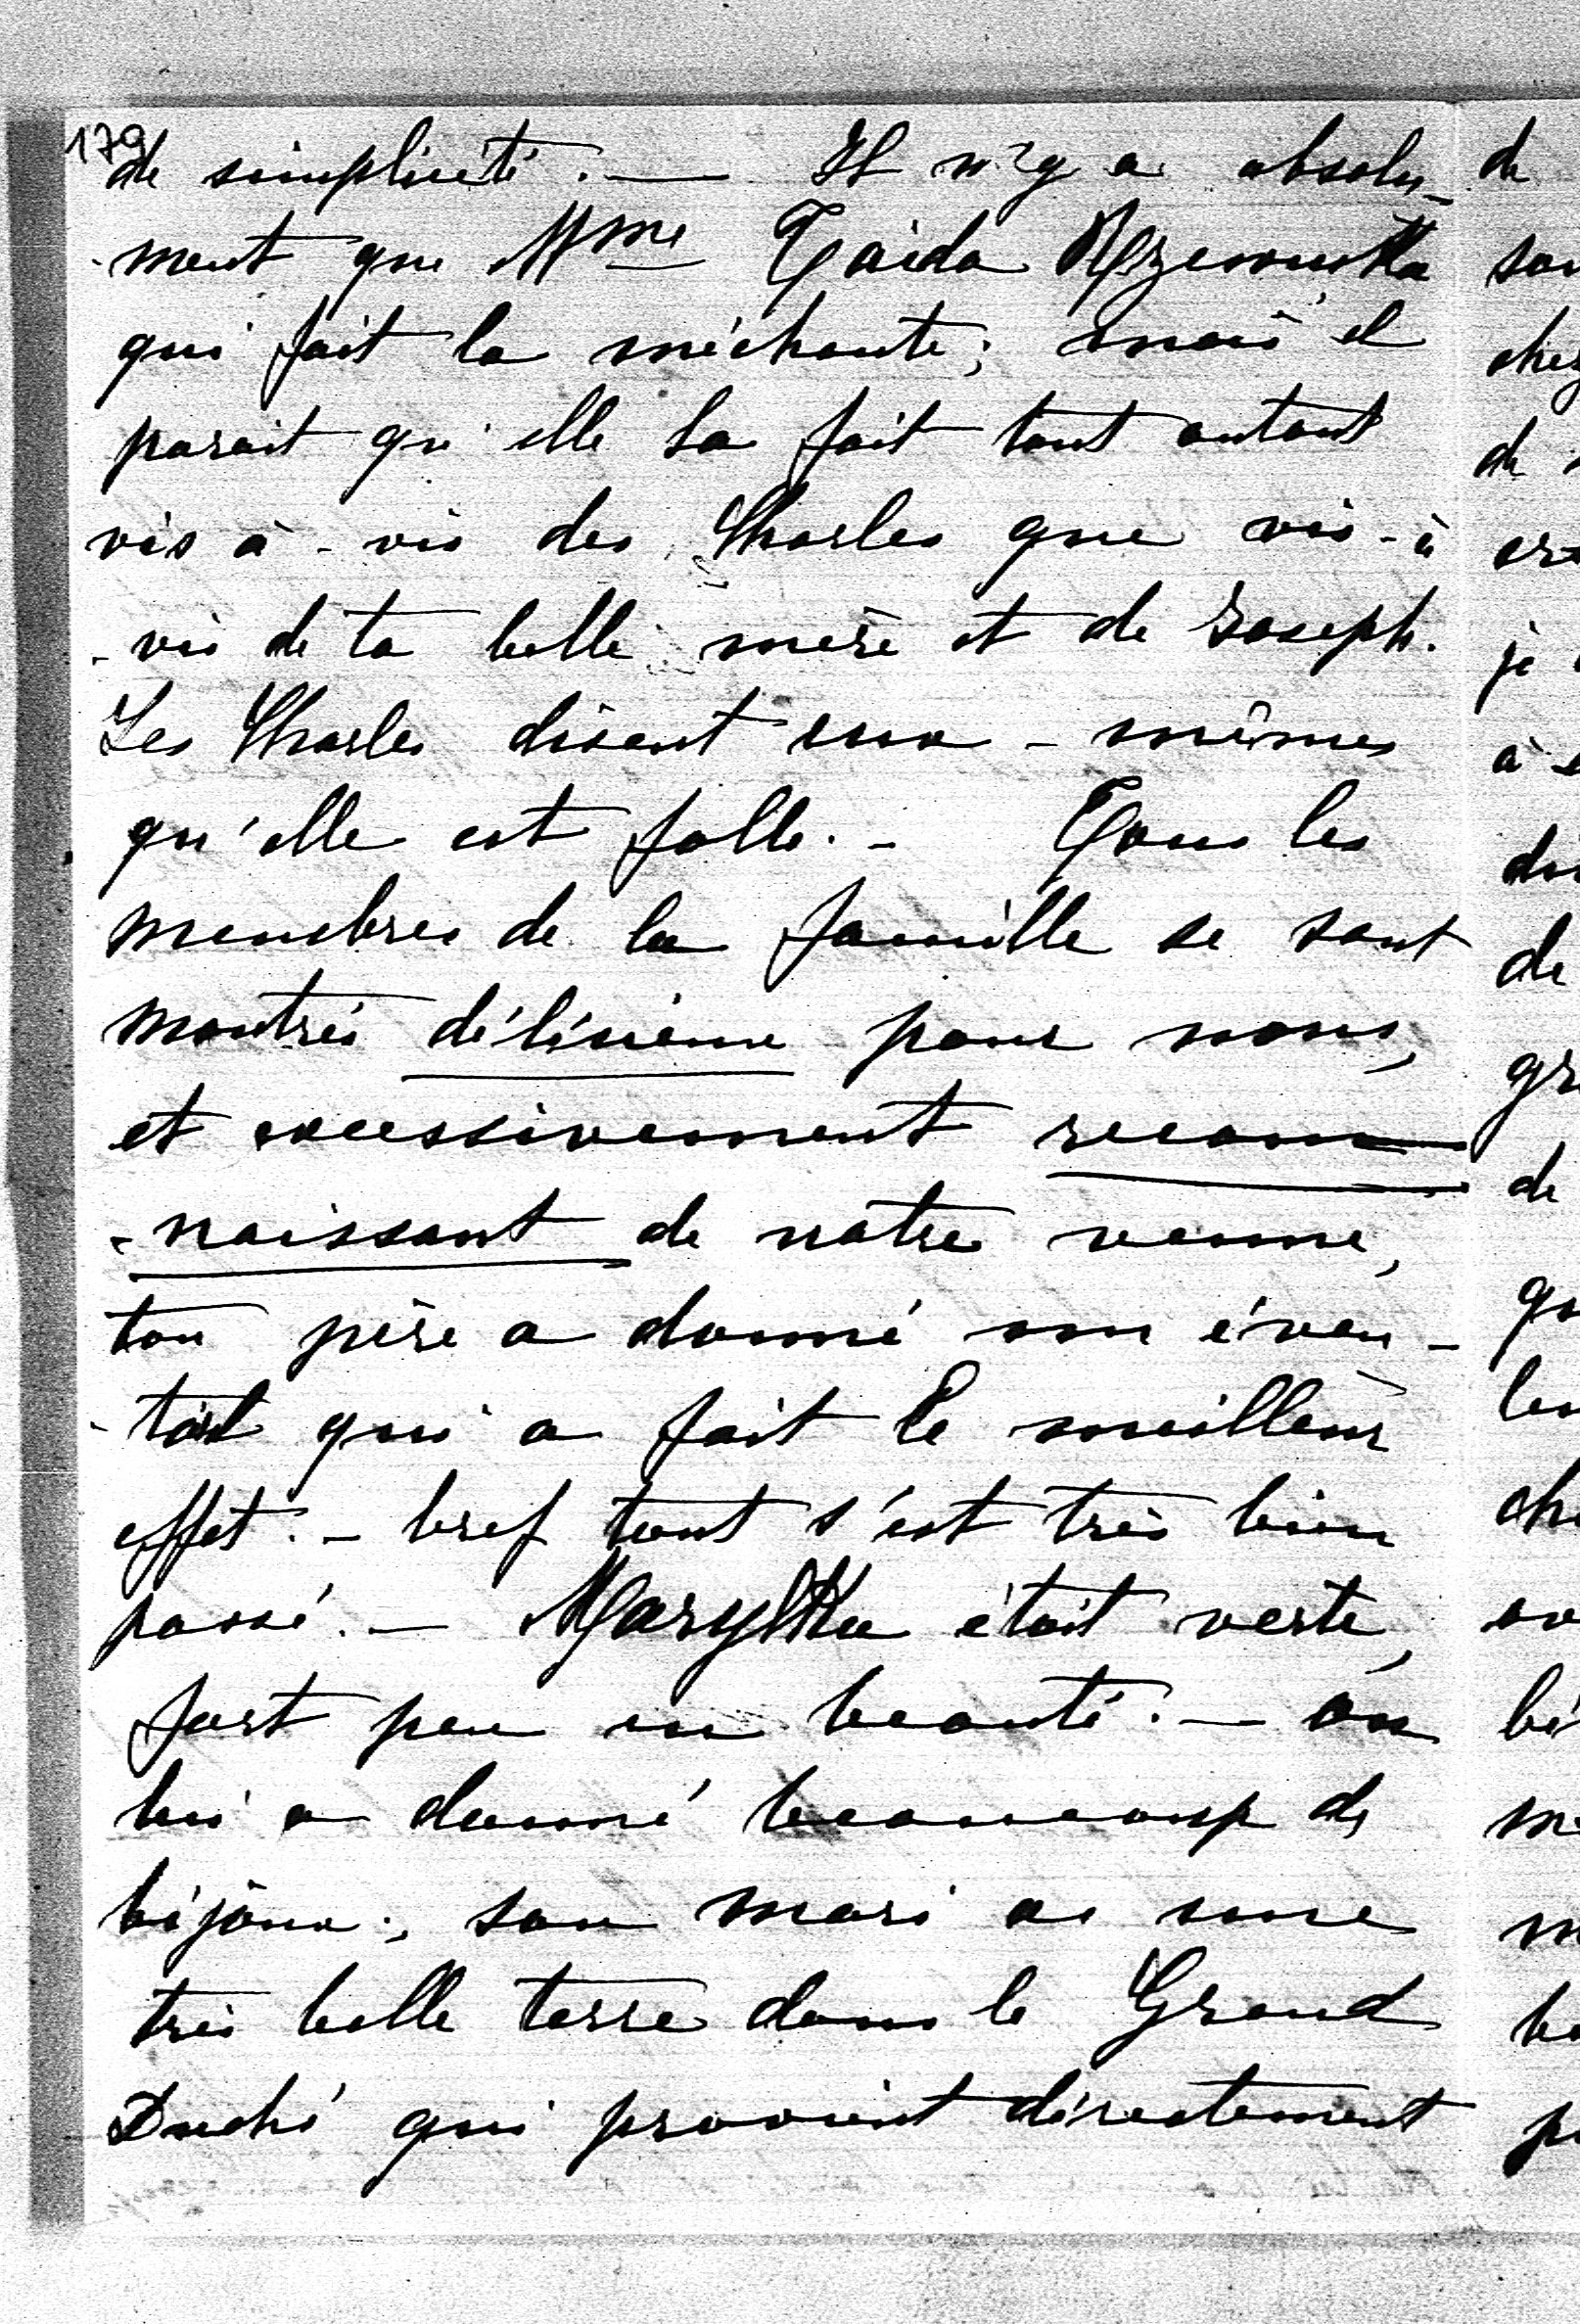 179
de simplicité. — Il n'y a absolu-
-ment que Mme Taïda Rzewuska
qui fait la méchante; mais il
parait qu'elle la fait tout autant
vis à - vis des Charles que vis - à
- vis de ta belle mère et de Joseph.
Les Charles disent eux - mêmes
qu'elle est folle. - Tous les
membres de la famille se sont
montrés délicieux pour nous,
et excessivement recon
-naissant de notre venue,
ton père a donné son éven-
-tail qui a fait le meilleur
effet. - bref tout s'est très bien
passé. — Marylka était verte,
fort peu en beauté. — on
lui a donné beaucoup de
bijoux; son mari a une
très belle terre dans le Grand
Duché qui provient directement
de
son
chez
de
je
à
de
de